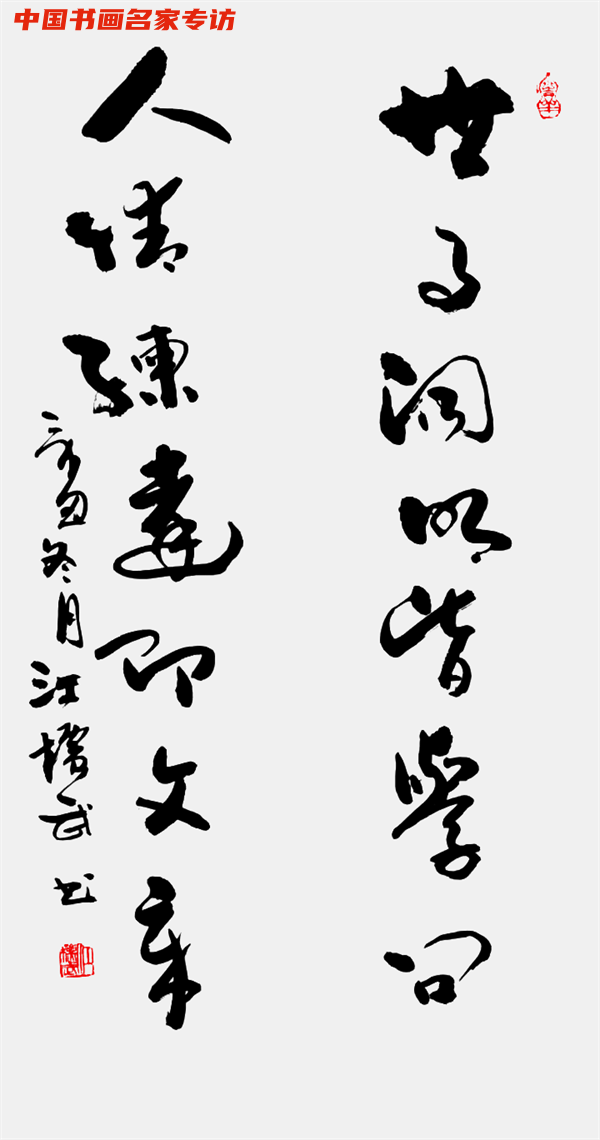 中国书画名家专访
世事洞明皆学问
人情练达即文章
辛丑冬月江
武书